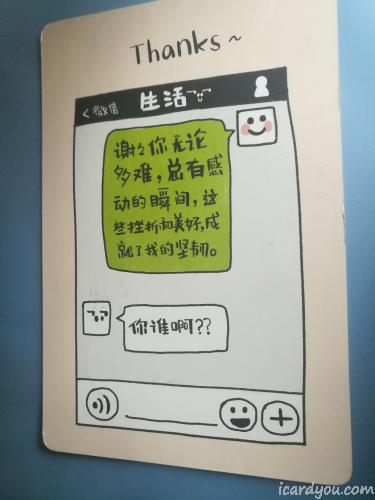 Thanks~
<微信 生活
谢谢你无论
多难，总有感
动的瞬间，这
些挫折和美好，成
就了我的坚韧。
你谁啊??
icardyou.com